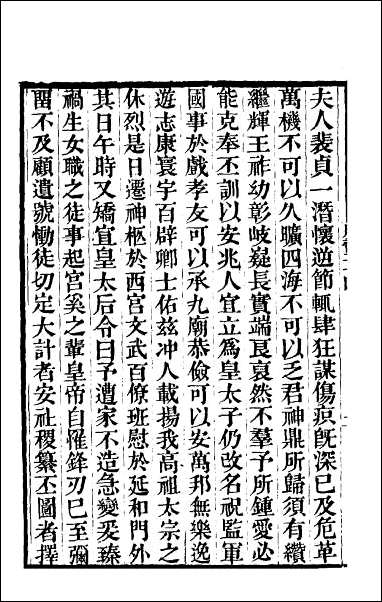 夫人裴貞一潛懷逆節輒肆狂謀傷痕旣深已及危革
萬機不可以久曠四海不可以乏君神鼎所歸須有纘
繼輝王祚幼彰岐嶷長實端良裒然不羣予所鍾愛必
能克奉丕訓以安兆人宜立爲皇太子仍改名祝監軍
國事於戲孝友可以承九廟恭儉可以安萬邦無樂逸
遊志康寰宇百辟卿士佑茲沖人載揚我高祖太宗之
休烈是日遷神柩於西宮文武百僚班慰於延和門外
其日午時又矯宣皇太后令曰予遭家不造急變爰臻
禍生女職之徒事起宮奚之輩皇帝自罹鋒刃已至彌
畱不及顧遺號慟徒切定大計者安社稷纂丕圖者擇